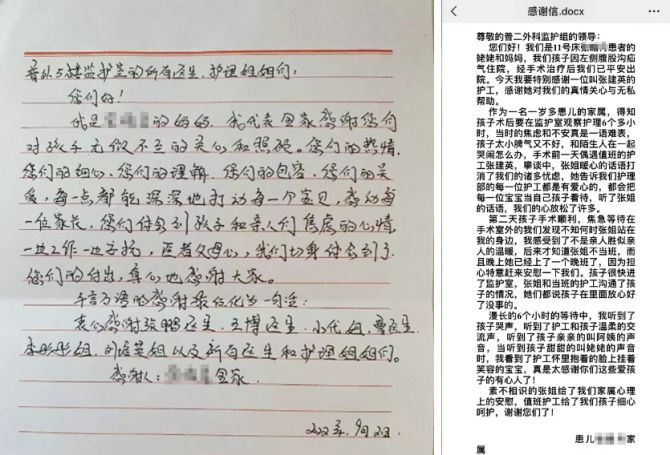 普外与楼监护室的所有医生、护理姐姐们:
您们好!
我是的妈妈,我代表全家感谢您们
对孩子无微不至的关心和照顾。您们的热情、
您们的细心、您们的理解、您们的包容、您们的关
爱,每一点都能深深地打动每一个宝贝,感动每
一位家长。您们体会到孩子和亲人们焦虑的心情
一边工作一边安抚,医者父母心,我们切身体会到了
您们的付出,真心地感谢大家。
千言万语的感谢最后化为一句话:
衷心感谢张鹏医生、王博医生、小代姐、曹医生、
李彤彤姐、以及所有医生和护理姐姐们。
感谢人:全家
感谢信.docx
尊敬的普二外科监护组的领导:
您们好!我们是11号床患者的
姥姥和妈妈,我们孩子因左侧腹股沟疝
气住院,经手术治疗后我们已平安出
院。今天我要特别感谢一位叫张建英的
护工,感谢她对我们的真情关心与无私
帮助。
作为一名一岁多患儿的家属,得知
孩子术后要在监护室观察护理6个多小
时,当时的焦虑和不安真是一语难表,
孩子太小脾气又不好,和陌生人在一起
哭闹怎么办,手术前一天偶遇值班的护
工张建英,攀谈中,张姐暖心的话语打
消了我们的诸多忧虑,她告诉我们护理
部的每一位护工都是有爱心的,都会把
每一位宝宝当自己孩子看待,听了张姐
的话语,我们的心放松了许多。
第二天孩子手术顺利,焦急等待在
手术室外的我们发现不知何时张姐站在
我的身边,我感受到了不是亲人胜似亲
人的温暖,后来才知道张姐不当班,而
且晚上她已经上了一个晚班了,因为担
心特意赶来安慰一下我们。孩子很快进
了监护室,张姐和当班的护工沟通了孩
子的情况,她们都说孩子在里面放心好
了没事的。
漫长的6个小时的等待中,我听到了
孩子哭声,听到了护工和孩子温柔的交
流声,听到了孩子亲亲的叫阿姨的声
音,当听到孩子甜甜的叫姥姥的声音
时,我看到了护工怀里抱着的脸上挂着
笑容的宝宝,真是太感谢你们这些爱孩
子的有心人了!
素不相识的张姐给了我们家属心理
上的安慰,值班护工给了我们孩子细心
呵护,谢谢您们了!
患儿家
属